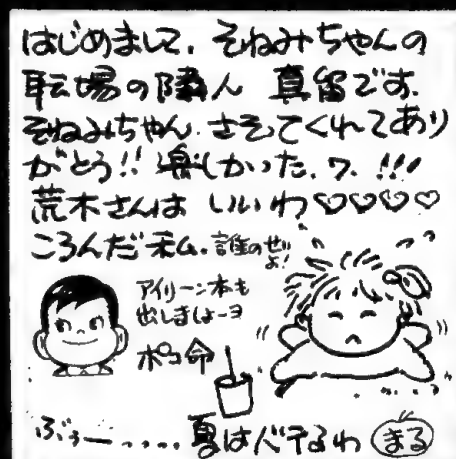 はじめまして、そねみちゃんの
職場の隣人 真留です。
そねみちゃん、さそってくれてあり
がとう!! 楽しかった。ワ。!!!
荒木さんは いいわ♡♡♡♡
ころんだ私。誰のせいよ!
アイリーン本も
出しましょーヨ
ポコ命
ぶぅー..... 夏はバテるわ
まる